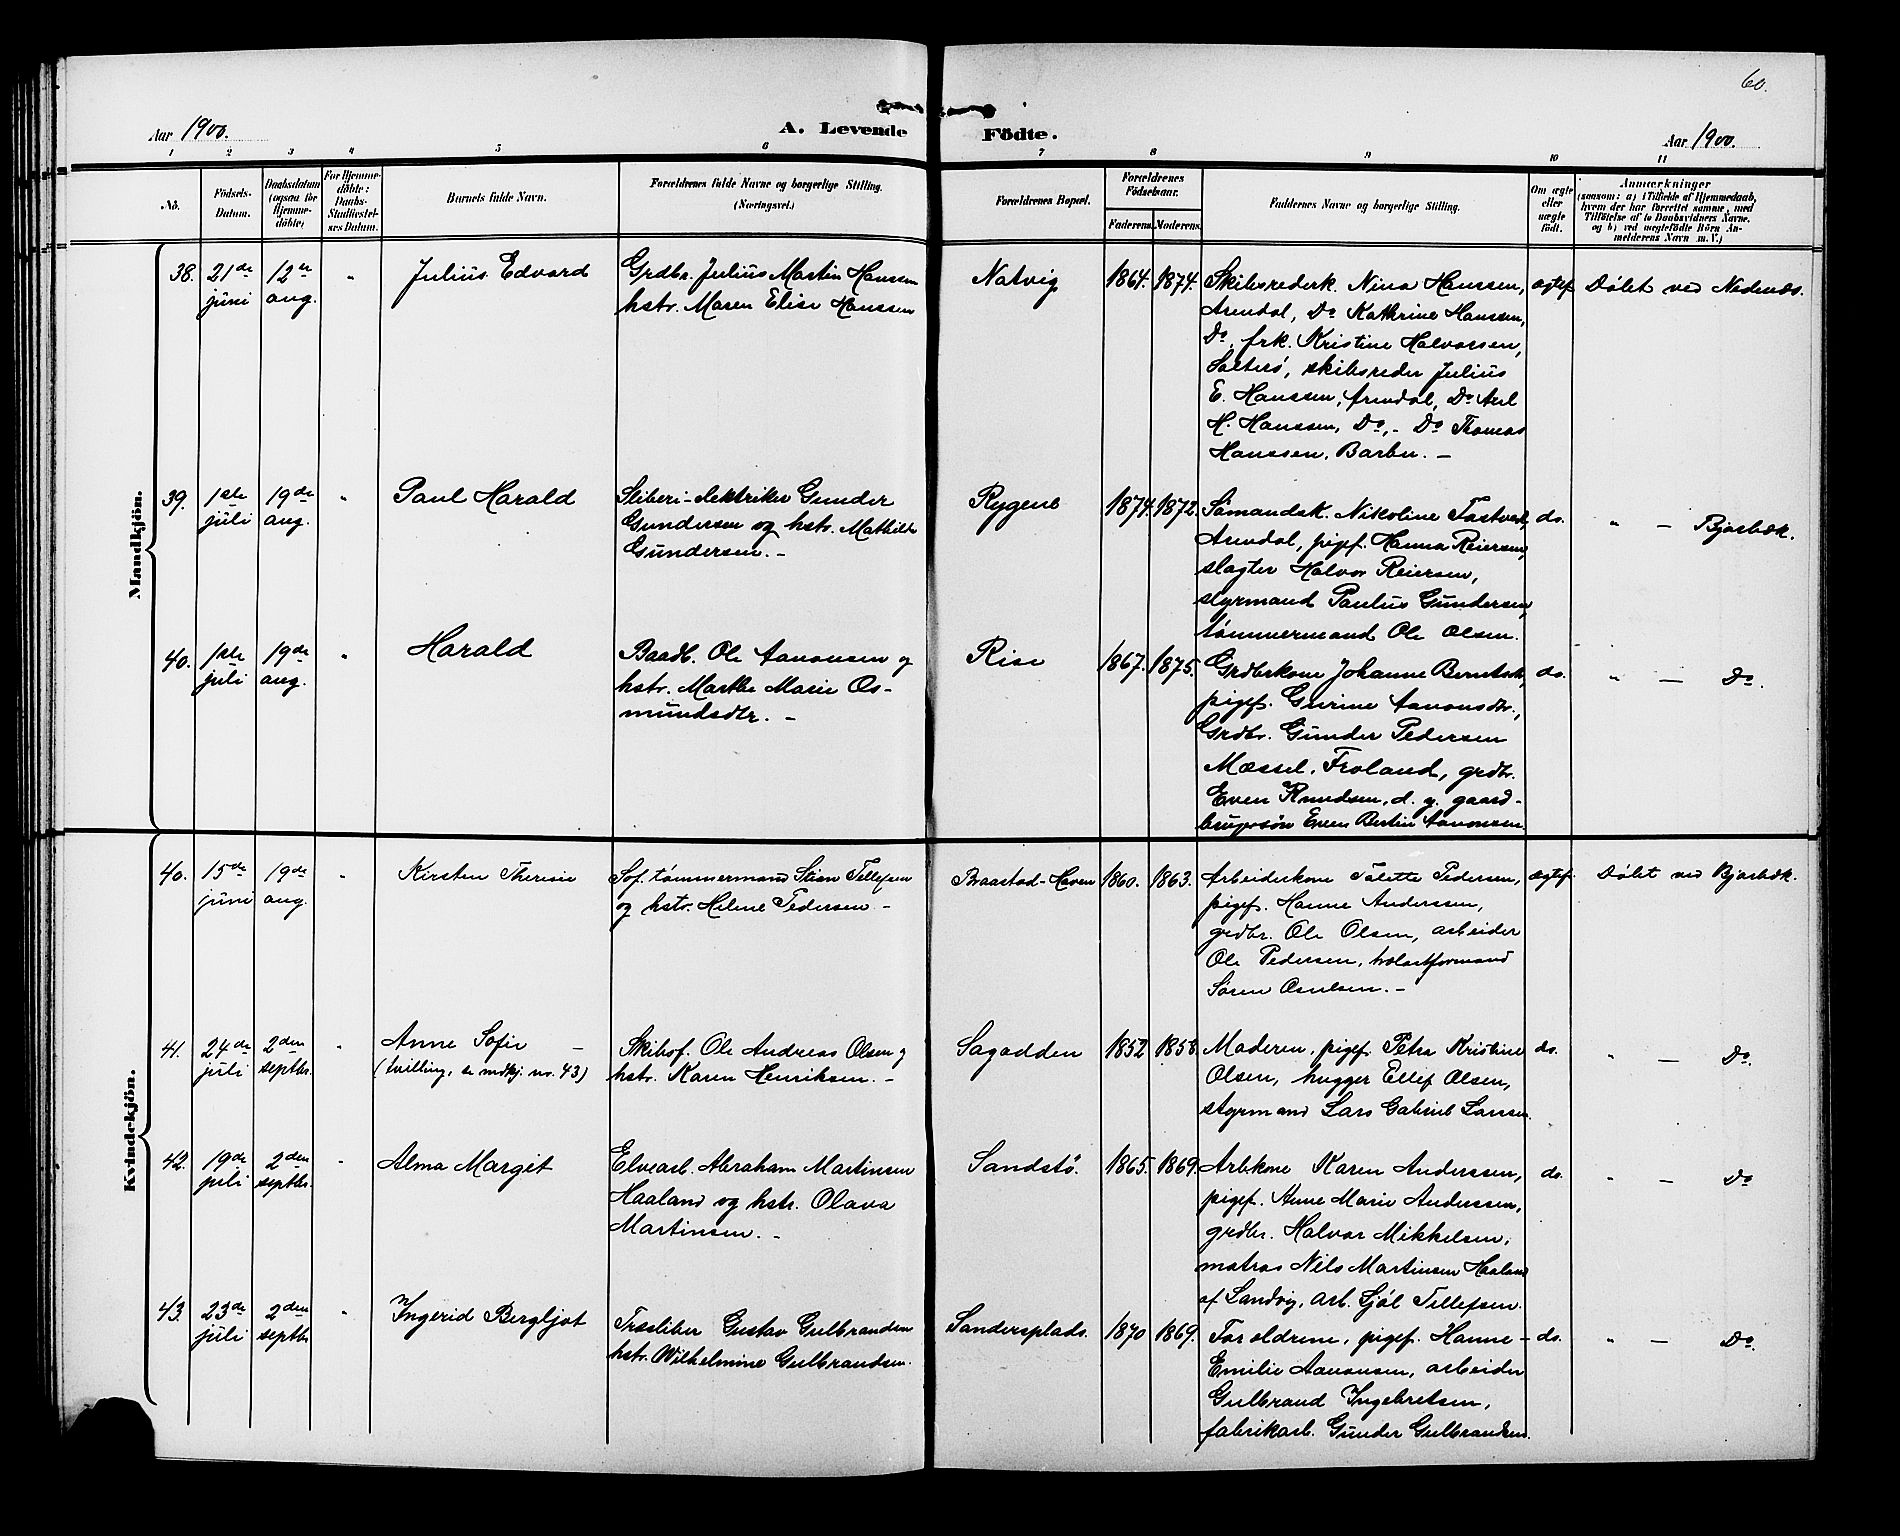 60.
Aar 1900.
A. Levende Födte.
Aar 1900.
1 2 3 4 5 6 7 8 9 10 11
No.
Födsels-
Datum.
Daabsdatum
(ogsaa for
Hjemme-
döbte)
For Hjemme-
döbte:
Daabs-
Stadfæstel-
ses Datum.
Barnets fulde Navn.
Forældrenes fulde Navne og borgerlige Stilling.
(Næringsvei.)
Forældrenes Bopæl.
Forældrenes
Födselsaar.
Faderens. Moderens.
Faddernes Navne og borgerlige Stilling.
Om ægte
eller
uægte
født.
Anmærkninger
(saasom: a) i Tilfælde af Hjemmedaab,
hvem der har forrettet samme, med
Tilföielse af to Daabsvidners Navne,
og b) ved uægtefödte Börn An-
melderens Navn m. V.)
Mandkjön.
38.
21de
juni
12te
aug.
"
Julius Edvard
Grdbr. Julius Martin Hanssen
hstr. Maren Elise Hanssen
Natvig
1864.
1874.
Skibsrederk. Nina Hanssen,
Arendal, Do Kathrine Hanssen,
Do, frk. Kristine Halvorsen,
Salterö, skibsreder Julius
E. Hanssen, Arendal, Do Axel
H. Hanssen, Do, - Do Thomas
Hanssen, Barbu. -
ægtef.
Døbt ved Nedenæs.
39.
1ste
juli
19de
aug.
"
Paul Harald
Sliberi-elektriker Gunder
Gundersen og hstr. Mathilde
Gundersen. -
Rygene
1874.
1872.
Sömandsk. Nikoline Tastved,
Arendal, pigef. Hanna Reiersen,
slagter Halvor Reiersen,
styrmand Paulus Gundersen,
tømmermand Ole Olsen.
do.
" - Bjorbæk.
40.
1ste
juli
19de
aug.
"
Harald
Baadb. Ole Aanonsen og
hstr. Marthe Marie Os-
mundsdtr. -
Rise
1867.
1875.
Grdbrkone Johanne Berntsdt.,
pigef. Gurine Aanonsdtr.,
Grdbr. Gunder Pedersen
Mæssel, Froland, grdbr.
Even Knudsen, d. y. gaard-
brugersön Even Bertin Aanonsen.
do.
" - Do.
Kvindekjön.
40.
15de
juni
19de
aug.
"
Kirsten Theresie
Sof. tømmermand Stian Tellefsen
og hstr. Helene Pedersen -
Braastad-Haven
1860.
1863.
Arbeiderkone Tolette Pedersen,
pigef. Hanne Anderssen,
grdbr. Ole Olsen, arbeider
Ole Pedersen, holastformand
Sören Osulsen. -
ægtef.
Døbt ved Bjorbæk.
41.
24de
juli
2den
septbr.
"
Anne Sofie -
(tvilling, se mdkj. no. 43)
Skibsf. Ole Andreas Olsen og
hstr. Karen Henriksen. -
Sagadden
1852
1858.
Moderen, pigef. Petra Kristine
Olsen, hugger Ellef Olsen,
styrmand Lars Gabriel Larsen.
do.
" - Do.
42.
19de
juli
2den
septbr.
"
Alma Margit
Elvearb. Abraham Martinsen
Haaland og hstr. Olava
Martinsen. -
Sandstö.
1865.
1869.
Arbkone Karen Anderssen,
pigef. Anne Marie Anderssen,
grdbr. Halvor Mikkelsen,
matros Nils Martinsen Haaland
af Landvig, arb. Sjöl Tellefsen.
do.
" - Do
43.
23de
juli
2den
septbr.
"
Ingerid Bergljot
Træsliber Gustav Gulbrandsen
hstr. Wilhelmine Gulbrandsen.
Sandersplads.
1870
1869.
Foroldrene, pigef. Hanne -
Emilie Aanonsen, arbeider
Gulbrand Ingebretsen,
fabrikarb. Gunder Gulbrandsen.
do.
" - Do.